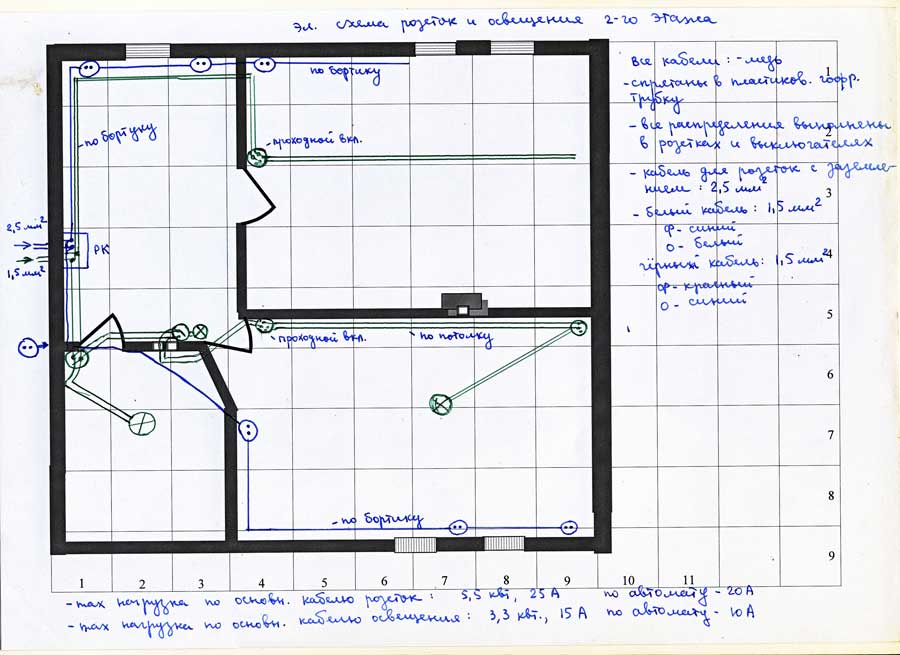 эл. схема розеток и освещения 2-го этажа
все кабели: - медь
- спрятаны в пластиков. гофр. трубку
- все распределения выполнены
в розетках и выключателях
- кабель для розеток с заземле-
нием: 2,5 мм²
- белый кабель: 1,5 мм²
ф- синий
о- белый
чёрный кабель: 1,5 мм²
ф- красный
о- синий
1
2
3
4
5
6
7
8
9
по бортику
- по бортику
- проходной вкл.
2,5 мм²
РК
1,5 мм²
- проходной вкл.
- по потолку
- по бортику
1 2 3 4 5 6 7 8 9 10 11
- max нагрузка по основн. кабелю розеток: 5,5 квт, 25 А по автомату - 20А
- max нагрузка по основн. кабелю освещения: 3,3 квт., 15 А по автомату - 10А